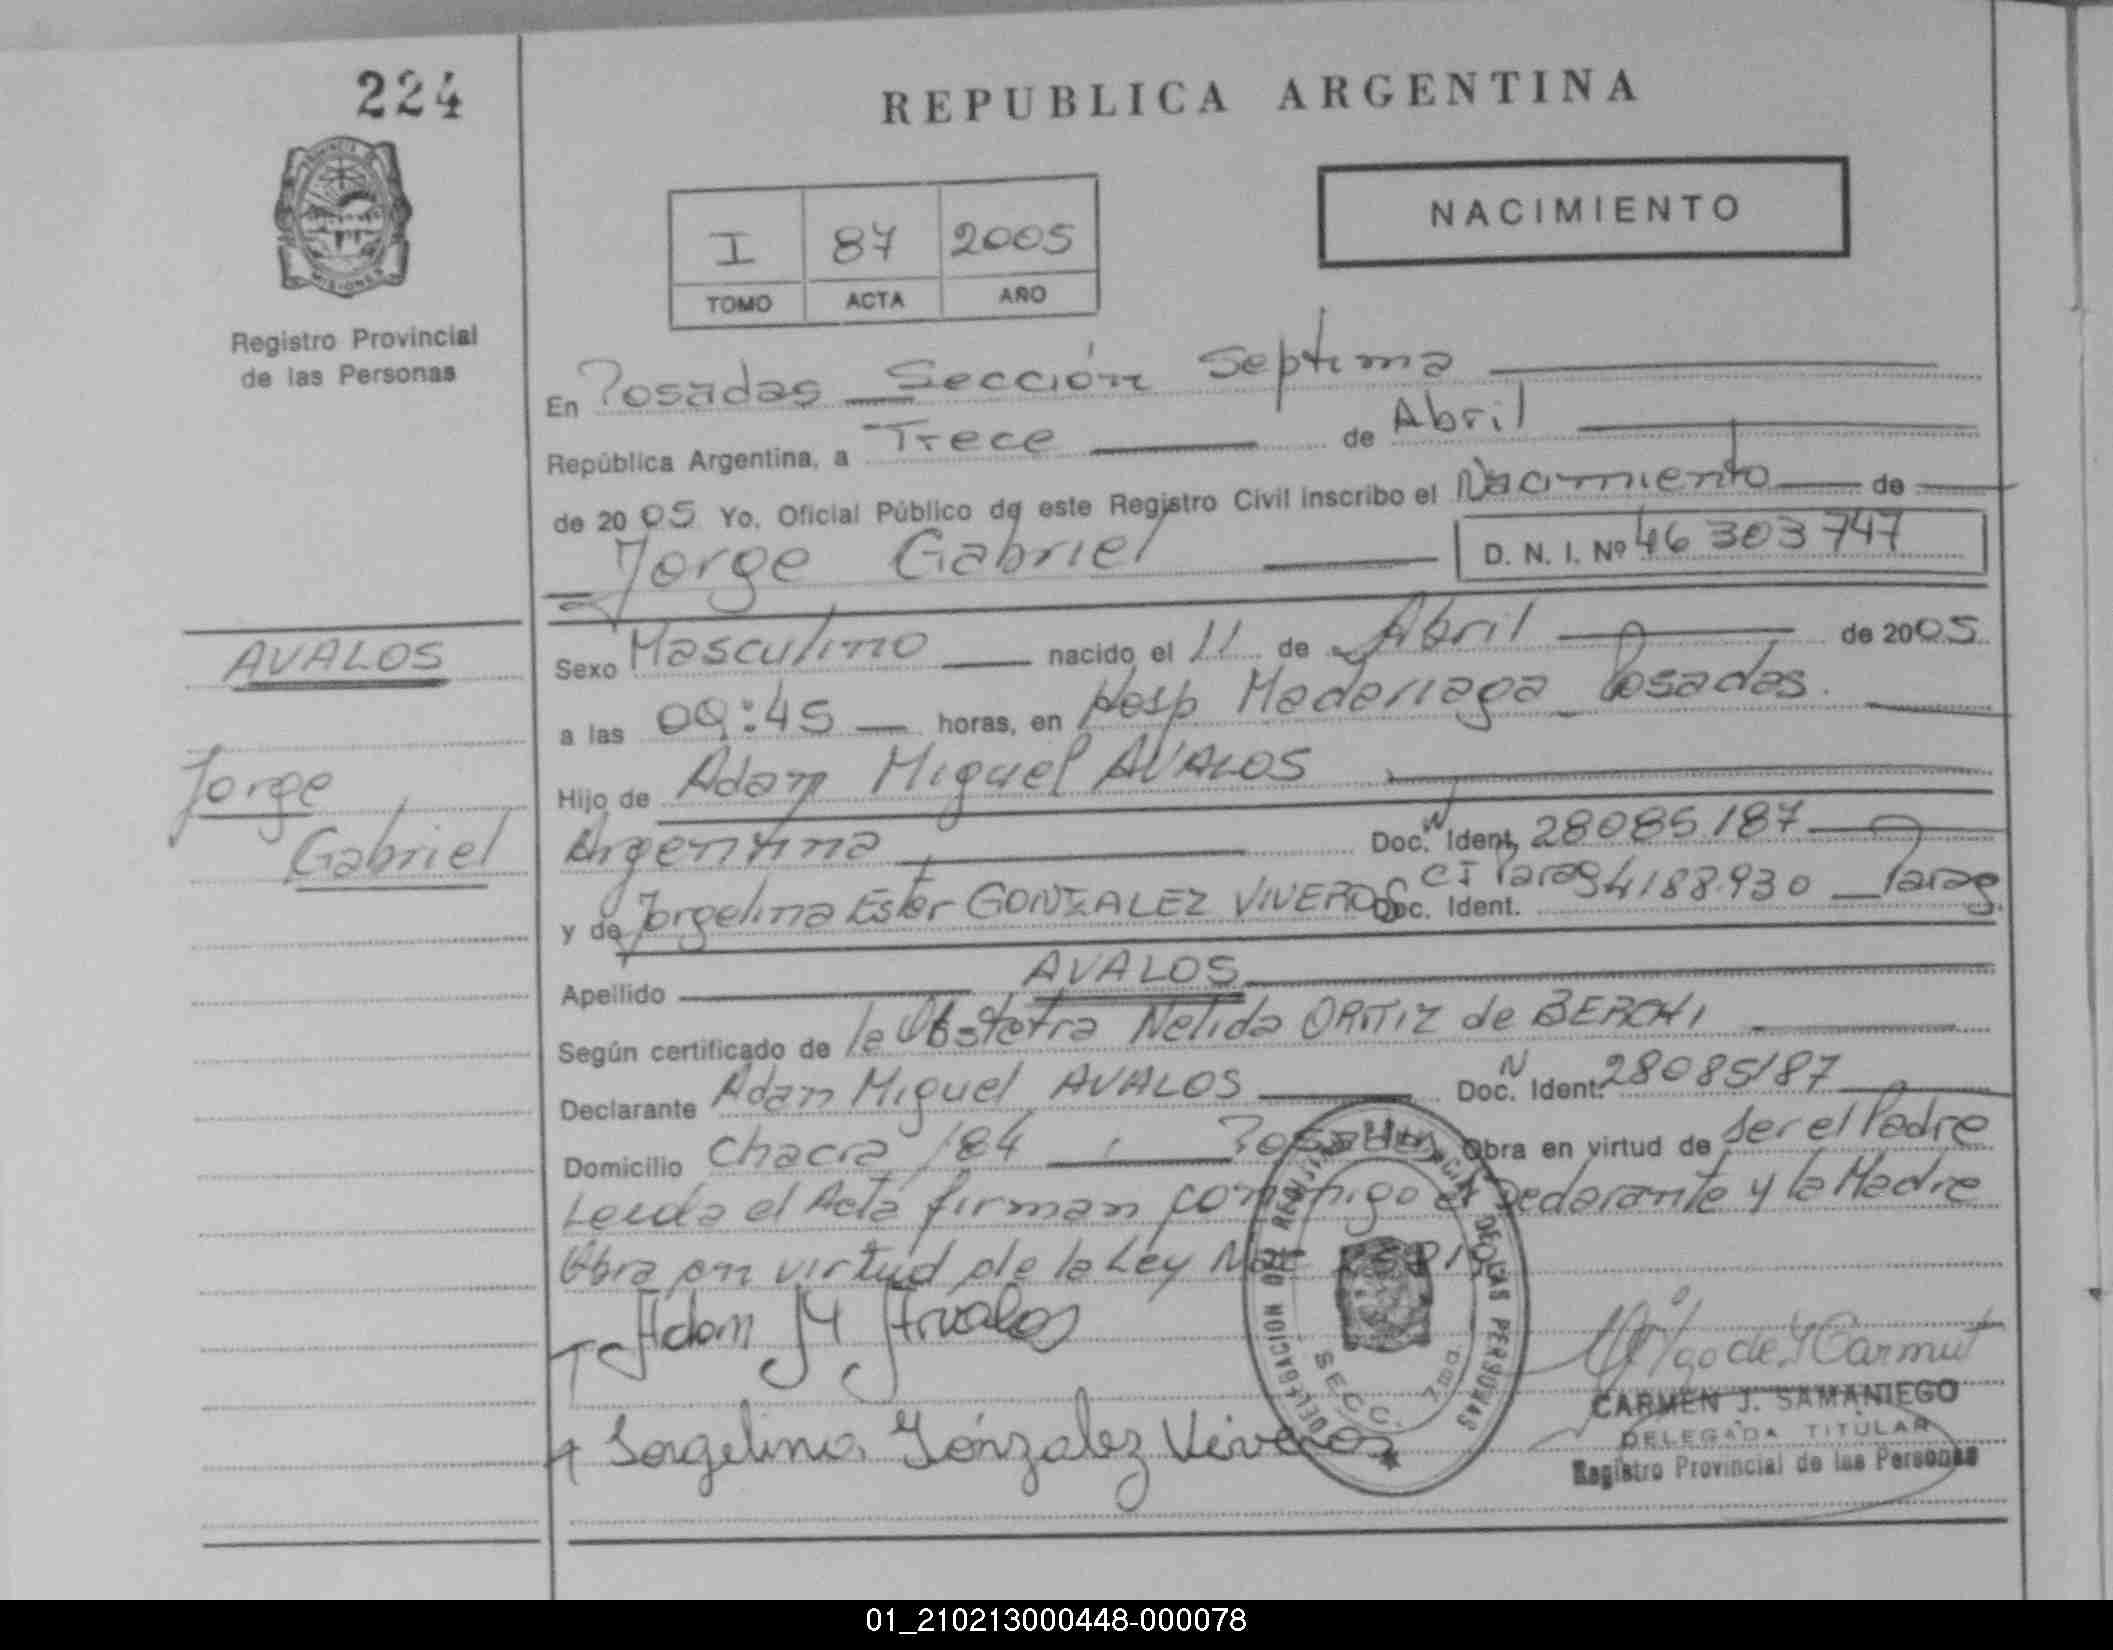 224
REPUBLICA ARGENTINA
NACIMIENTO
I 87 2005
TOMO ACTA AÑO
PROVINCIA DE MISIONES
Registro Provincial
de las Personas
En Posadas Sección Septima
República Argentina, a Trece de Abril
de 2005 Yo, Oficial Público de este Registro Civil inscribo el Nacimiento de
Jorge Gabriel D. N. I. Nº 46 303 747
AVALOS
Jorge
Gabriel
Sexo Masculino nacido el 11 de Abril de 2005
a las 09:45 horas, en Hosp Madariaga Posadas.
Hijo de Adam Miguel AVALOS
Argentina Doc. N Ident. 28085187
y de Jorgelina Ester GONZALEZ VIVEROS Doc. Ident. CI Parag 4188.930 Parag
Apellido AVALOS
Según certificado de la Obstetra Nelida ORTIZ de BERCHI
Declarante Adam Miguel AVALOS Doc. N Ident. 28085187
Domicilio Chacra 184 Posadas Obra en virtud de ser el Padre
Leida el Acta firman conmigo el Declarante y la Madre
Obra en virtud de la Ley
Adam M Avalos
Jorgelina Gónzalez Viveros
DELEGACION DE LAS PERSONAS
SECC. 7ma.
CARMEN J. SAMANIEGO
DELEGADA TITULAR
Registro Provincial de las Personas
01_210213000448-000078